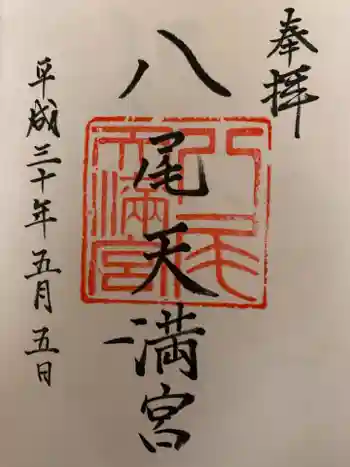 奉拝
八尾天満宮
八尾天満宮
平成三十年五月五日